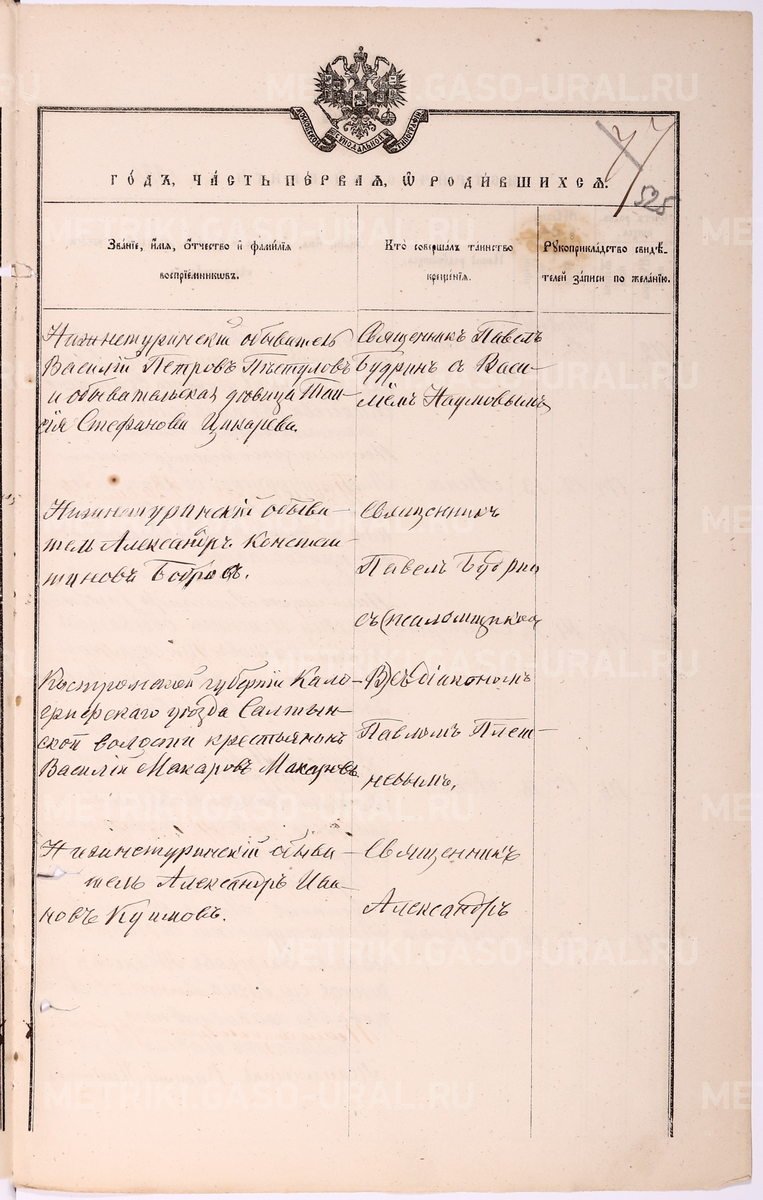 77
525
МОСКОВСКОЙ СѴНОДАЛЬНОЙ ТИПОГРАФІИ
ГО́ДЪ, ЧА́СТЬ ПЕ́РВАЯ, Ѡ҆ РОДИ́ВШИХСЯ.
Зва́нїе, и҆́мя, ѻ҆́тчество и҆ фами́лїя
воспрїе́мникѡвъ.
Кто̀ соверша́лъ та́инство
креще́нїя.
Рꙋкоприкла́дство свидѣ́-
телей за́писи по жела́нїю.
Нижнетуринскій обыватель
Василій Петровъ Пѣстуловъ
и обывательская дѣвица Таи-
сія Стефанова Цикарева.
Священникъ Павелъ
Будринъ с Васи-
ліемъ Наумовымъ
Нижнетуринскій обыва-
тель Александръ Констан-
тиновъ Бобровъ.
Священникъ
Павелъ Будрин
съ псаломщикомъ
Костромской губерніи Кало-
гривскаго уѣзда Салтын-
ской волости крестьянинъ
Василій Макаровъ Макаровъ
діакономъ
Павломъ Плет-
невымъ.
Нижнетуринскій обыва-
тель Александръ Ива-
новъ Куимовъ.
Священникъ
Александръ
METRIKI.GASO-URAL.RU